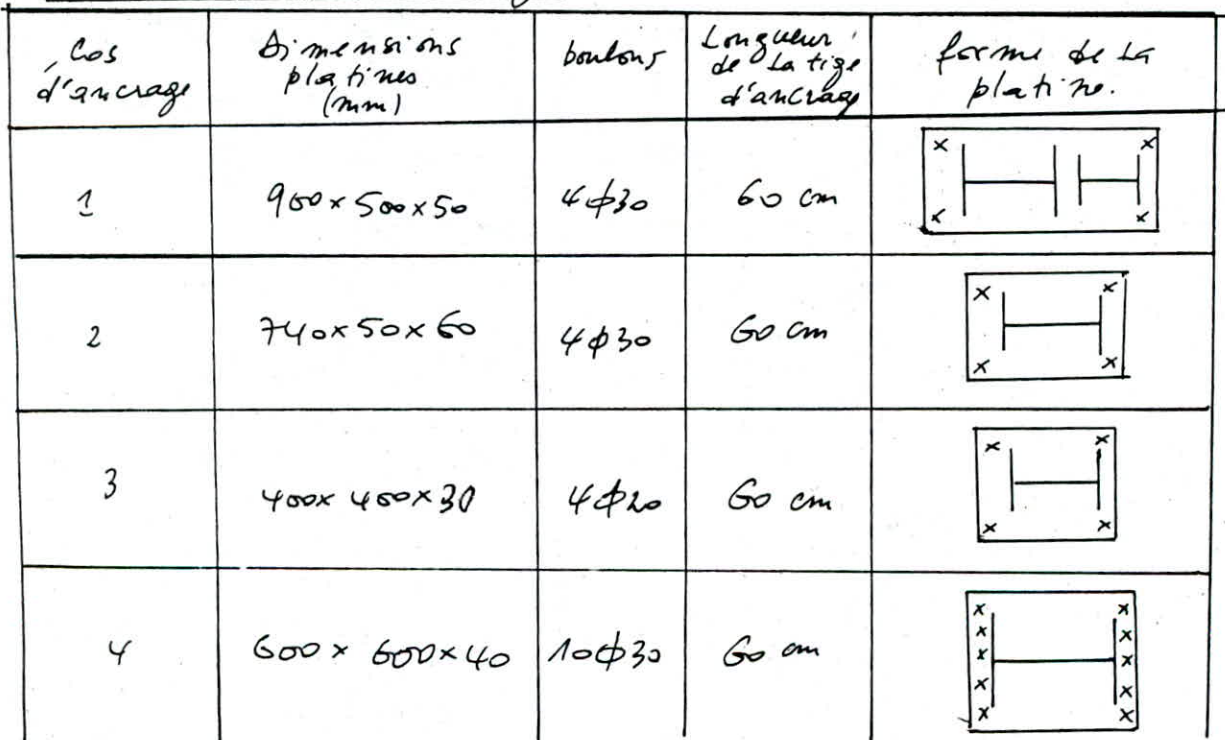 Cas
d'ancrage
Dimensions
platines
(mm)
boulons
Longueur
de la tige
d'ancrage
forme de la
platine.
1
900x500x50
4ϕ30
60 cm
2
740x50x60
4ϕ30
60 cm
3
400x400x30
4ϕ20
60 cm
4
600x600x40
10ϕ30
60 cm